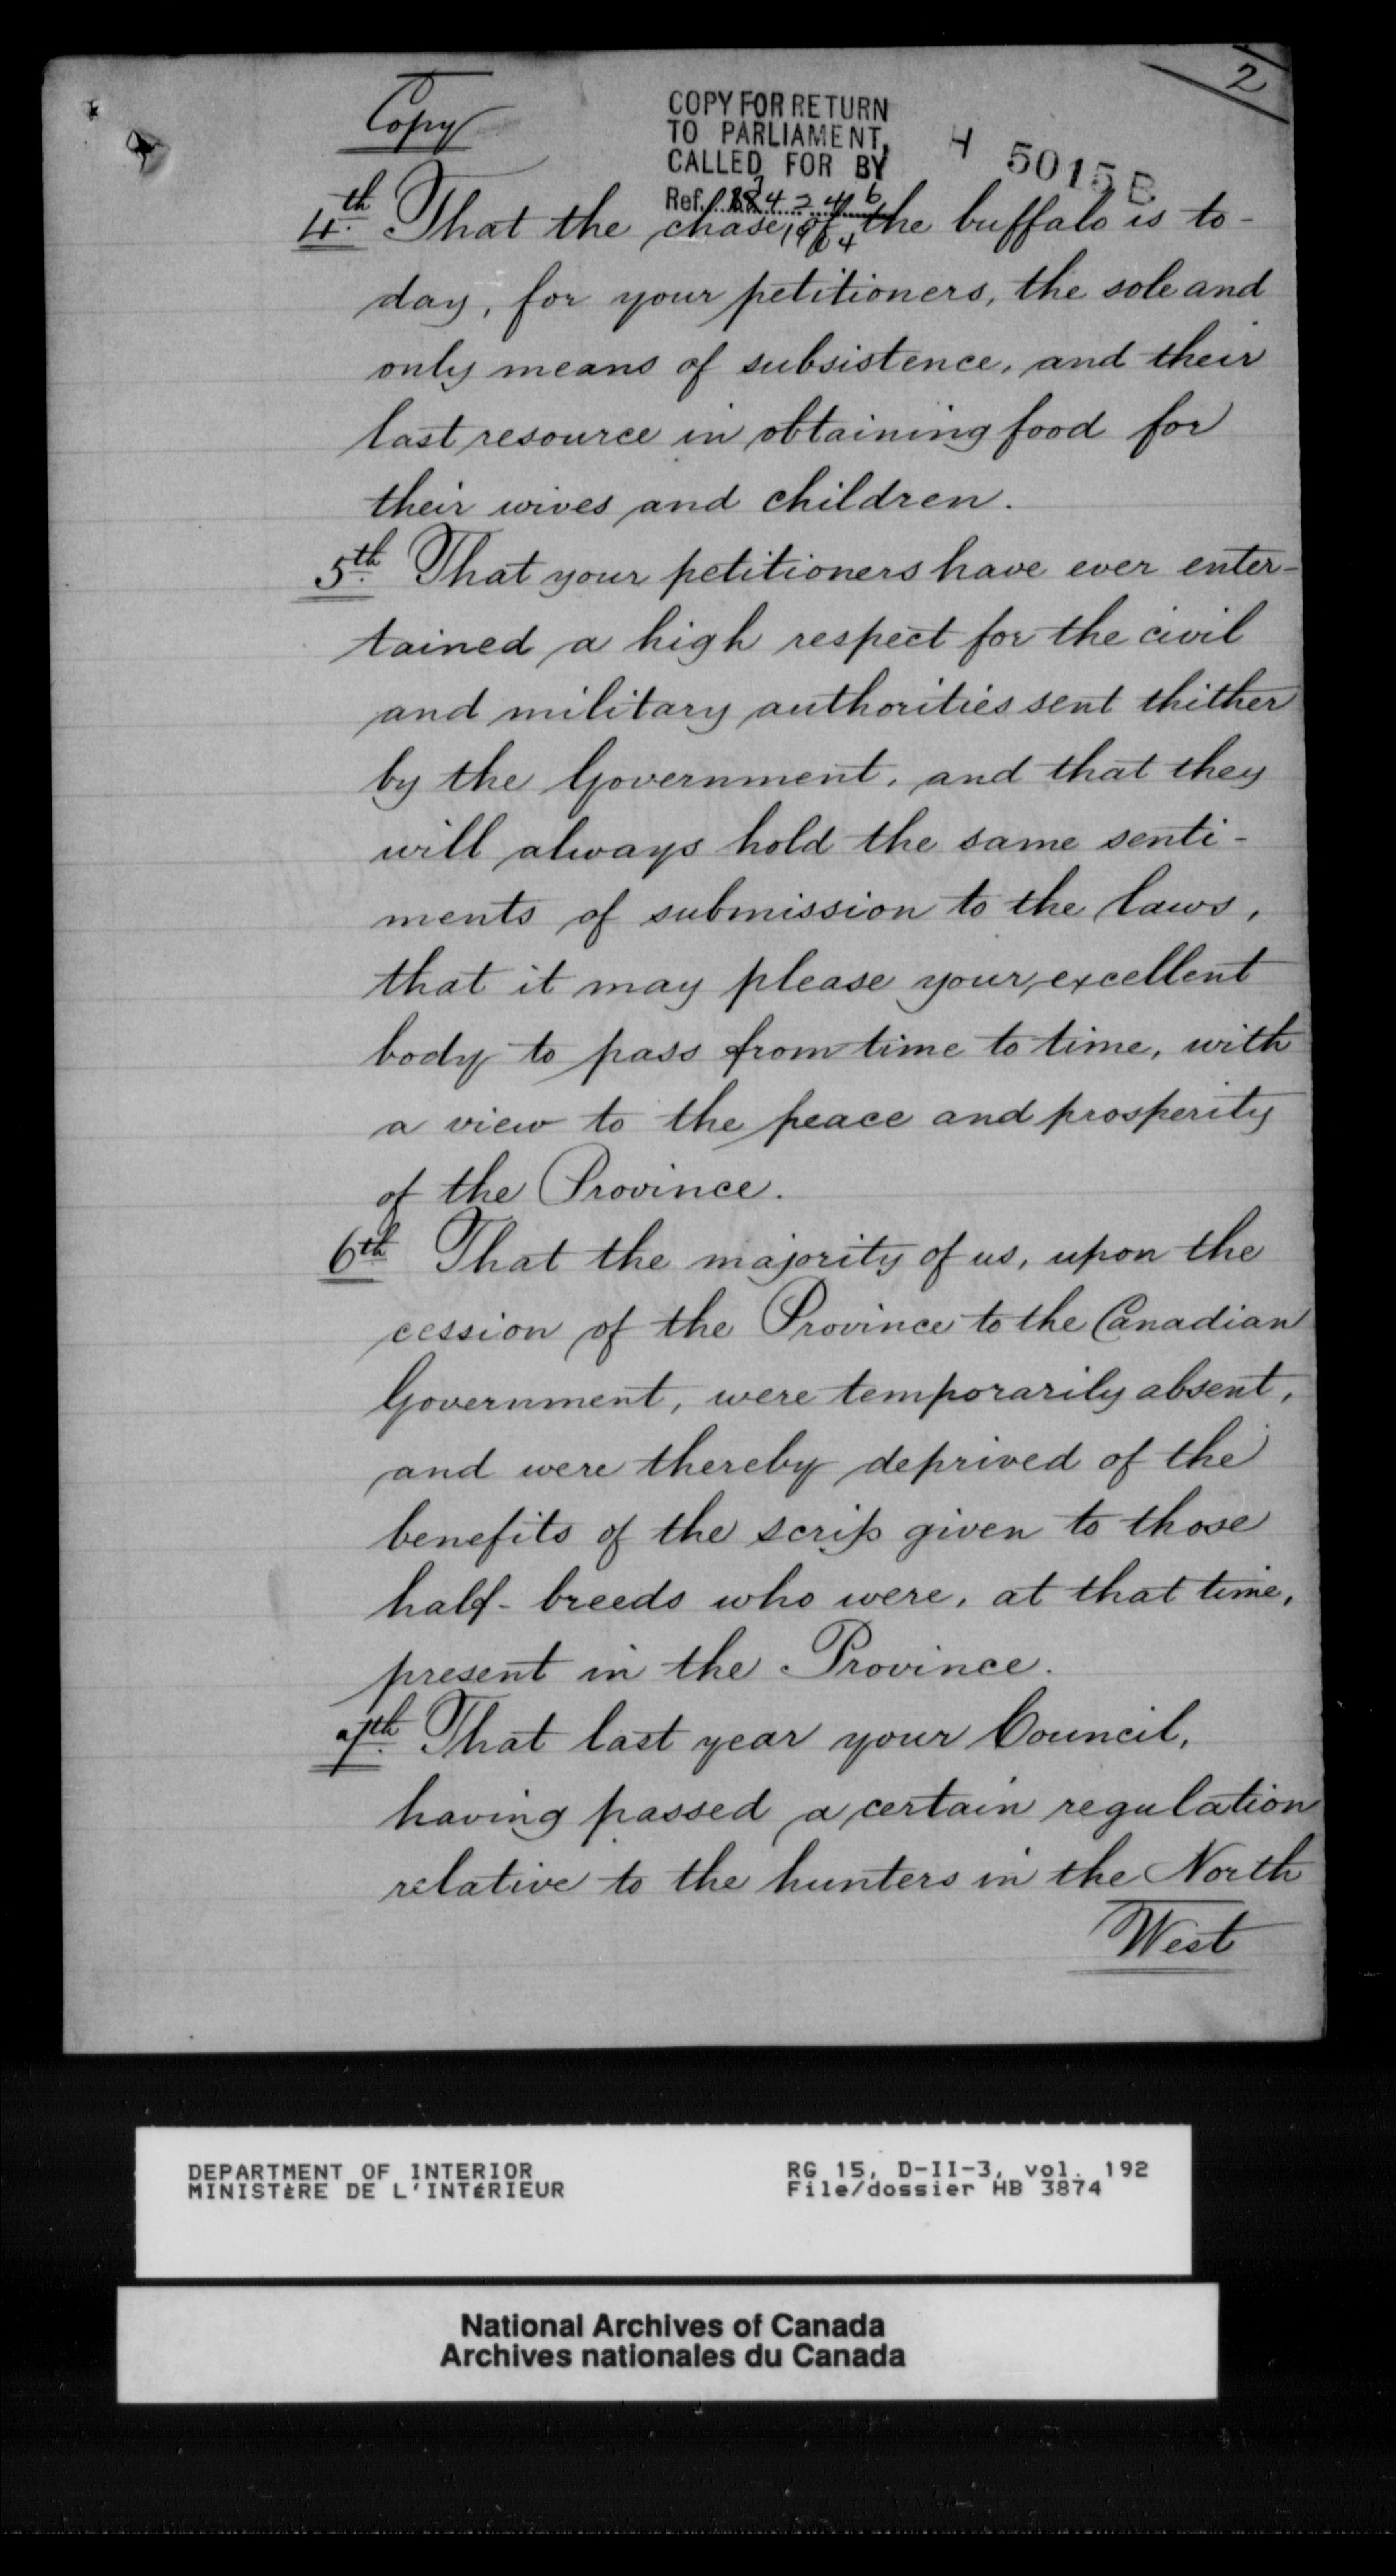 2
Copy
COPY FOR RETURN
TO PARLIAMENT,
CALLED FOR BY
4 5015 B
Ref.
4th. That the chase, of the buffalo is to-
day, for your petitioners, the sole and
only means of subsistence, and their
last resource in obtaining food for
their wives and children.
5th. That your petitioners have ever enter-
tained a high respect for the civil
and military authorities sent thither
by the Government, and that they
will always hold the same senti-
ments of submission to the laws,
that it may please your excellent
body to pass from time to time, with
a view to the peace and prosperity
of the Province.
6th That the majority of us, upon the
cession of the Province to the Canadian
Government, were temporarily absent,
and were thereby deprived of the
benefits of the scrip given to those
half-breeds who were, at that time,
present in the Province.
7th. That last year your Council,
having passed a certain regulation
relative to the hunters in the North
West
DEPARTMENT OF INTERIOR
MINISTÈRE DE L'INTÉRIEUR
RG 15, D-II-3, vol. 192
File/dossier HB 3874
National Archives of Canada
Archives nationales du Canada